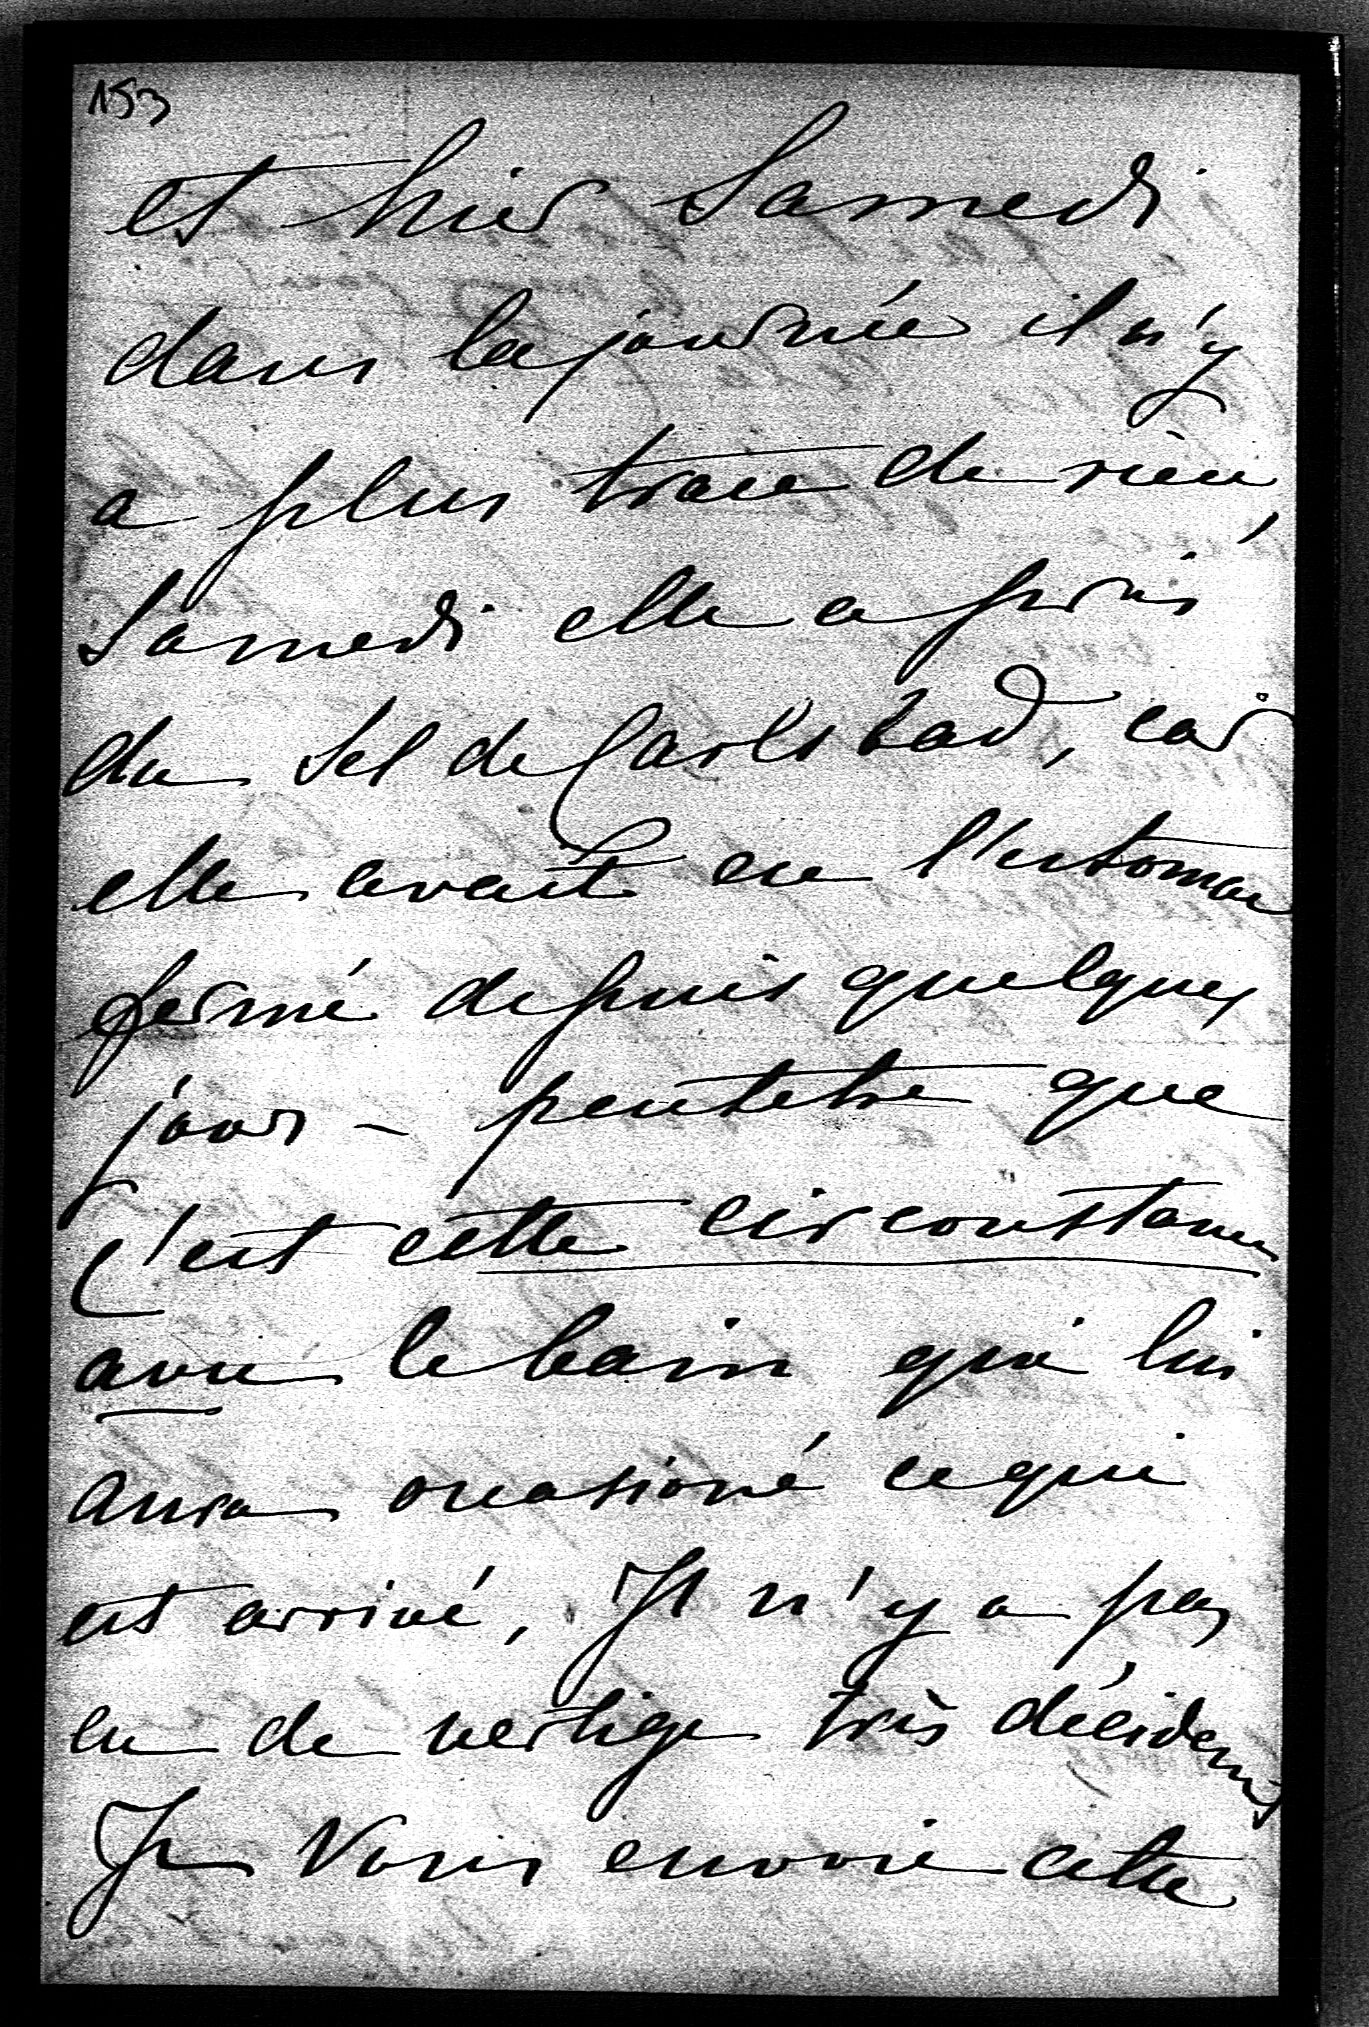 153
et hier Samedi
dans la journée il n'y
a plus trace de rien,
Samedi elle a pris
du Sel de Carlsbad, car
elle avait eu l'estomac
fermé depuis quelques
jours - peutetre que
c'est cette circonstance
avec le bain qui lui
aura occasioné ce qui
est arrivé, Il n'y a pas
eu de vertige très décidemt
Je Vous envoie cette